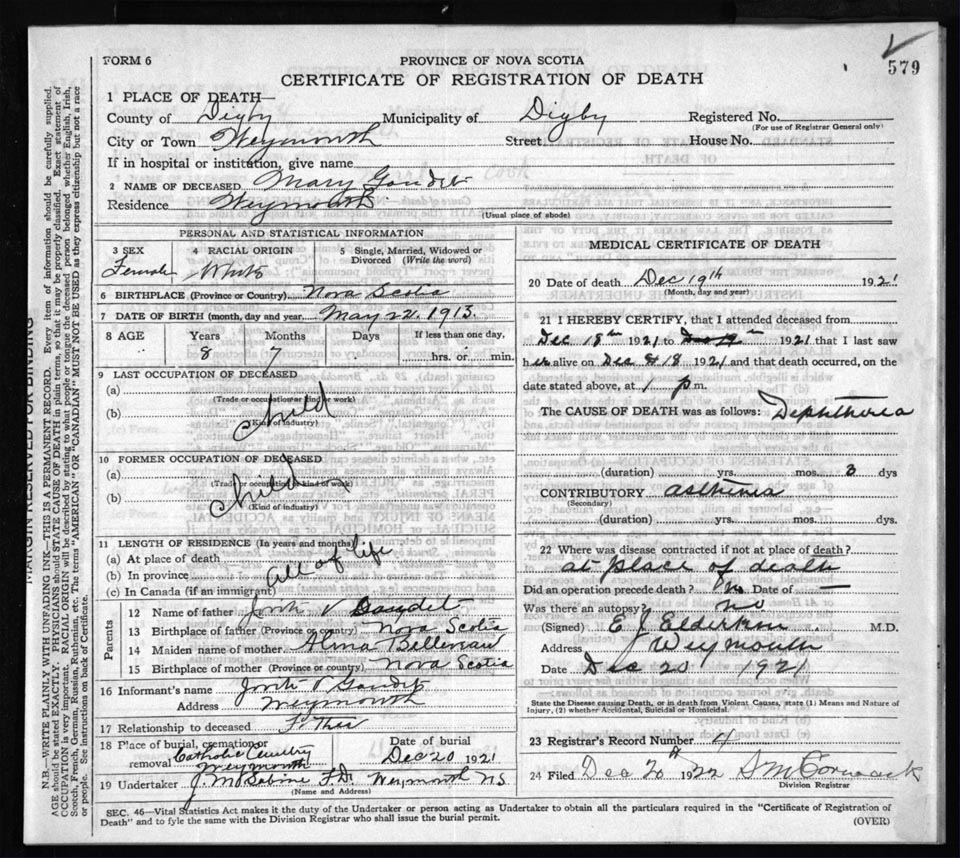 579
FORM 6
PROVINCE OF NOVA SCOTIA
CERTIFICATE OF REGISTRATION OF DEATH
1 PLACE OF DEATH—
County of Digby Municipality of Digby Registered No.
(For use of Registrar General only)
City or Town Weymouth Street House No.
If in hospital or institution, give name
2 NAME OF DECEASED Mary Gaudet
Residence Weymouth
(Usual place of abode)
PERSONAL AND STATISTICAL INFORMATION
3 SEX 4 RACIAL ORIGIN 5 Single, Married, Widowed or
Divorced (Write the word)
Female White
6 BIRTHPLACE (Province or Country) Nova Scotia
7 DATE OF BIRTH (month, day and year) May 22. 1913.
8 AGE Years Months Days If less than one day,
8 7 hrs. or min.
9 LAST OCCUPATION OF DECEASED
(a)
(Trade or occupation or kind of work)
(b) Child
(Kind of industry)
10 FORMER OCCUPATION OF DECEASED
(a)
(Trade or occupation or kind of work)
(b) Child
(Kind of industry)
11 LENGTH OF RESIDENCE (In years and months)
(a) At place of death
(b) In province All of life
(c) In Canada (if an immigrant)
Parents
12 Name of father V
13 Birthplace of father (Province or country) Nova Scotia
14 Maiden name of mother Alma
15 Birthplace of mother (Province or country) Nova Scotia
16 Informant's name V Gaudet
Address Weymouth
17 Relationship to deceased Father
18 Place of burial, cremation or removal Catholic Cemetery Weymouth Date of burial Dec 20 1921
19 Undertaker J. M Sabine F.D. Weymouth N.S
(Name and Address)
MEDICAL CERTIFICATE OF DEATH
20 Date of death Dec 19th 1921
(Month, day and year)
21 I HEREBY CERTIFY, that I attended deceased from
Dec 18th 1921 to 1921 that I last saw
her alive on Dec 18 1921 and that death occurred, on the
date stated above, at 1 p.m.
The CAUSE OF DEATH was as follows: Diphtheria
(duration) yrs. mos. 3 dys
CONTRIBUTORY asthenia
(Secondary)
(duration) yrs. mos. dys.
22 Where was disease contracted if not at place of death?
at place of death
Did an operation precede death? no Date of —
Was there an autopsy? no
(Signed) E J Elderkin M.D.
Address Weymouth
Date Dec 20 1921
State the Disease causing Death, or in death from Violent Causes, state (1) Means and Nature of
Injury, (2) whether Accidental, Suicidal or Homicidal.
23 Registrar's Record Number 4
24 Filed Dec 20th 1922 S McCormack
Division Registrar
SEC. 46—Vital Statistics Act makes it the duty of the Undertaker or person acting as Undertaker to obtain all the particulars required in the "Certificate of Registration of
Death" and to fyle the same with the Division Registrar who shall issue the burial permit.
(OVER)
MARGIN RESERVED FOR BINDING
N.B.—WRITE PLAINLY WITH UNFADING INK—THIS IS A PERMANENT RECORD. Every item of information should be carefully supplied.
AGE should be stated EXACTLY. PHYSICIANS should STATE CAUSE OF DEATH in plain terms, so that it may be properly classified. Exact statement of
OCCUPATION is very important. RACIAL ORIGIN will be described by stating to what people or tongue the deceased person belonged whether English, Irish,
Scotch, French, German, Russian, Ruthenian, etc. The terms "AMERICAN" OR "CANADIAN" MUST NOT BE USED as they express citizenship but not a race
or people. See instructions on back of Certificate.